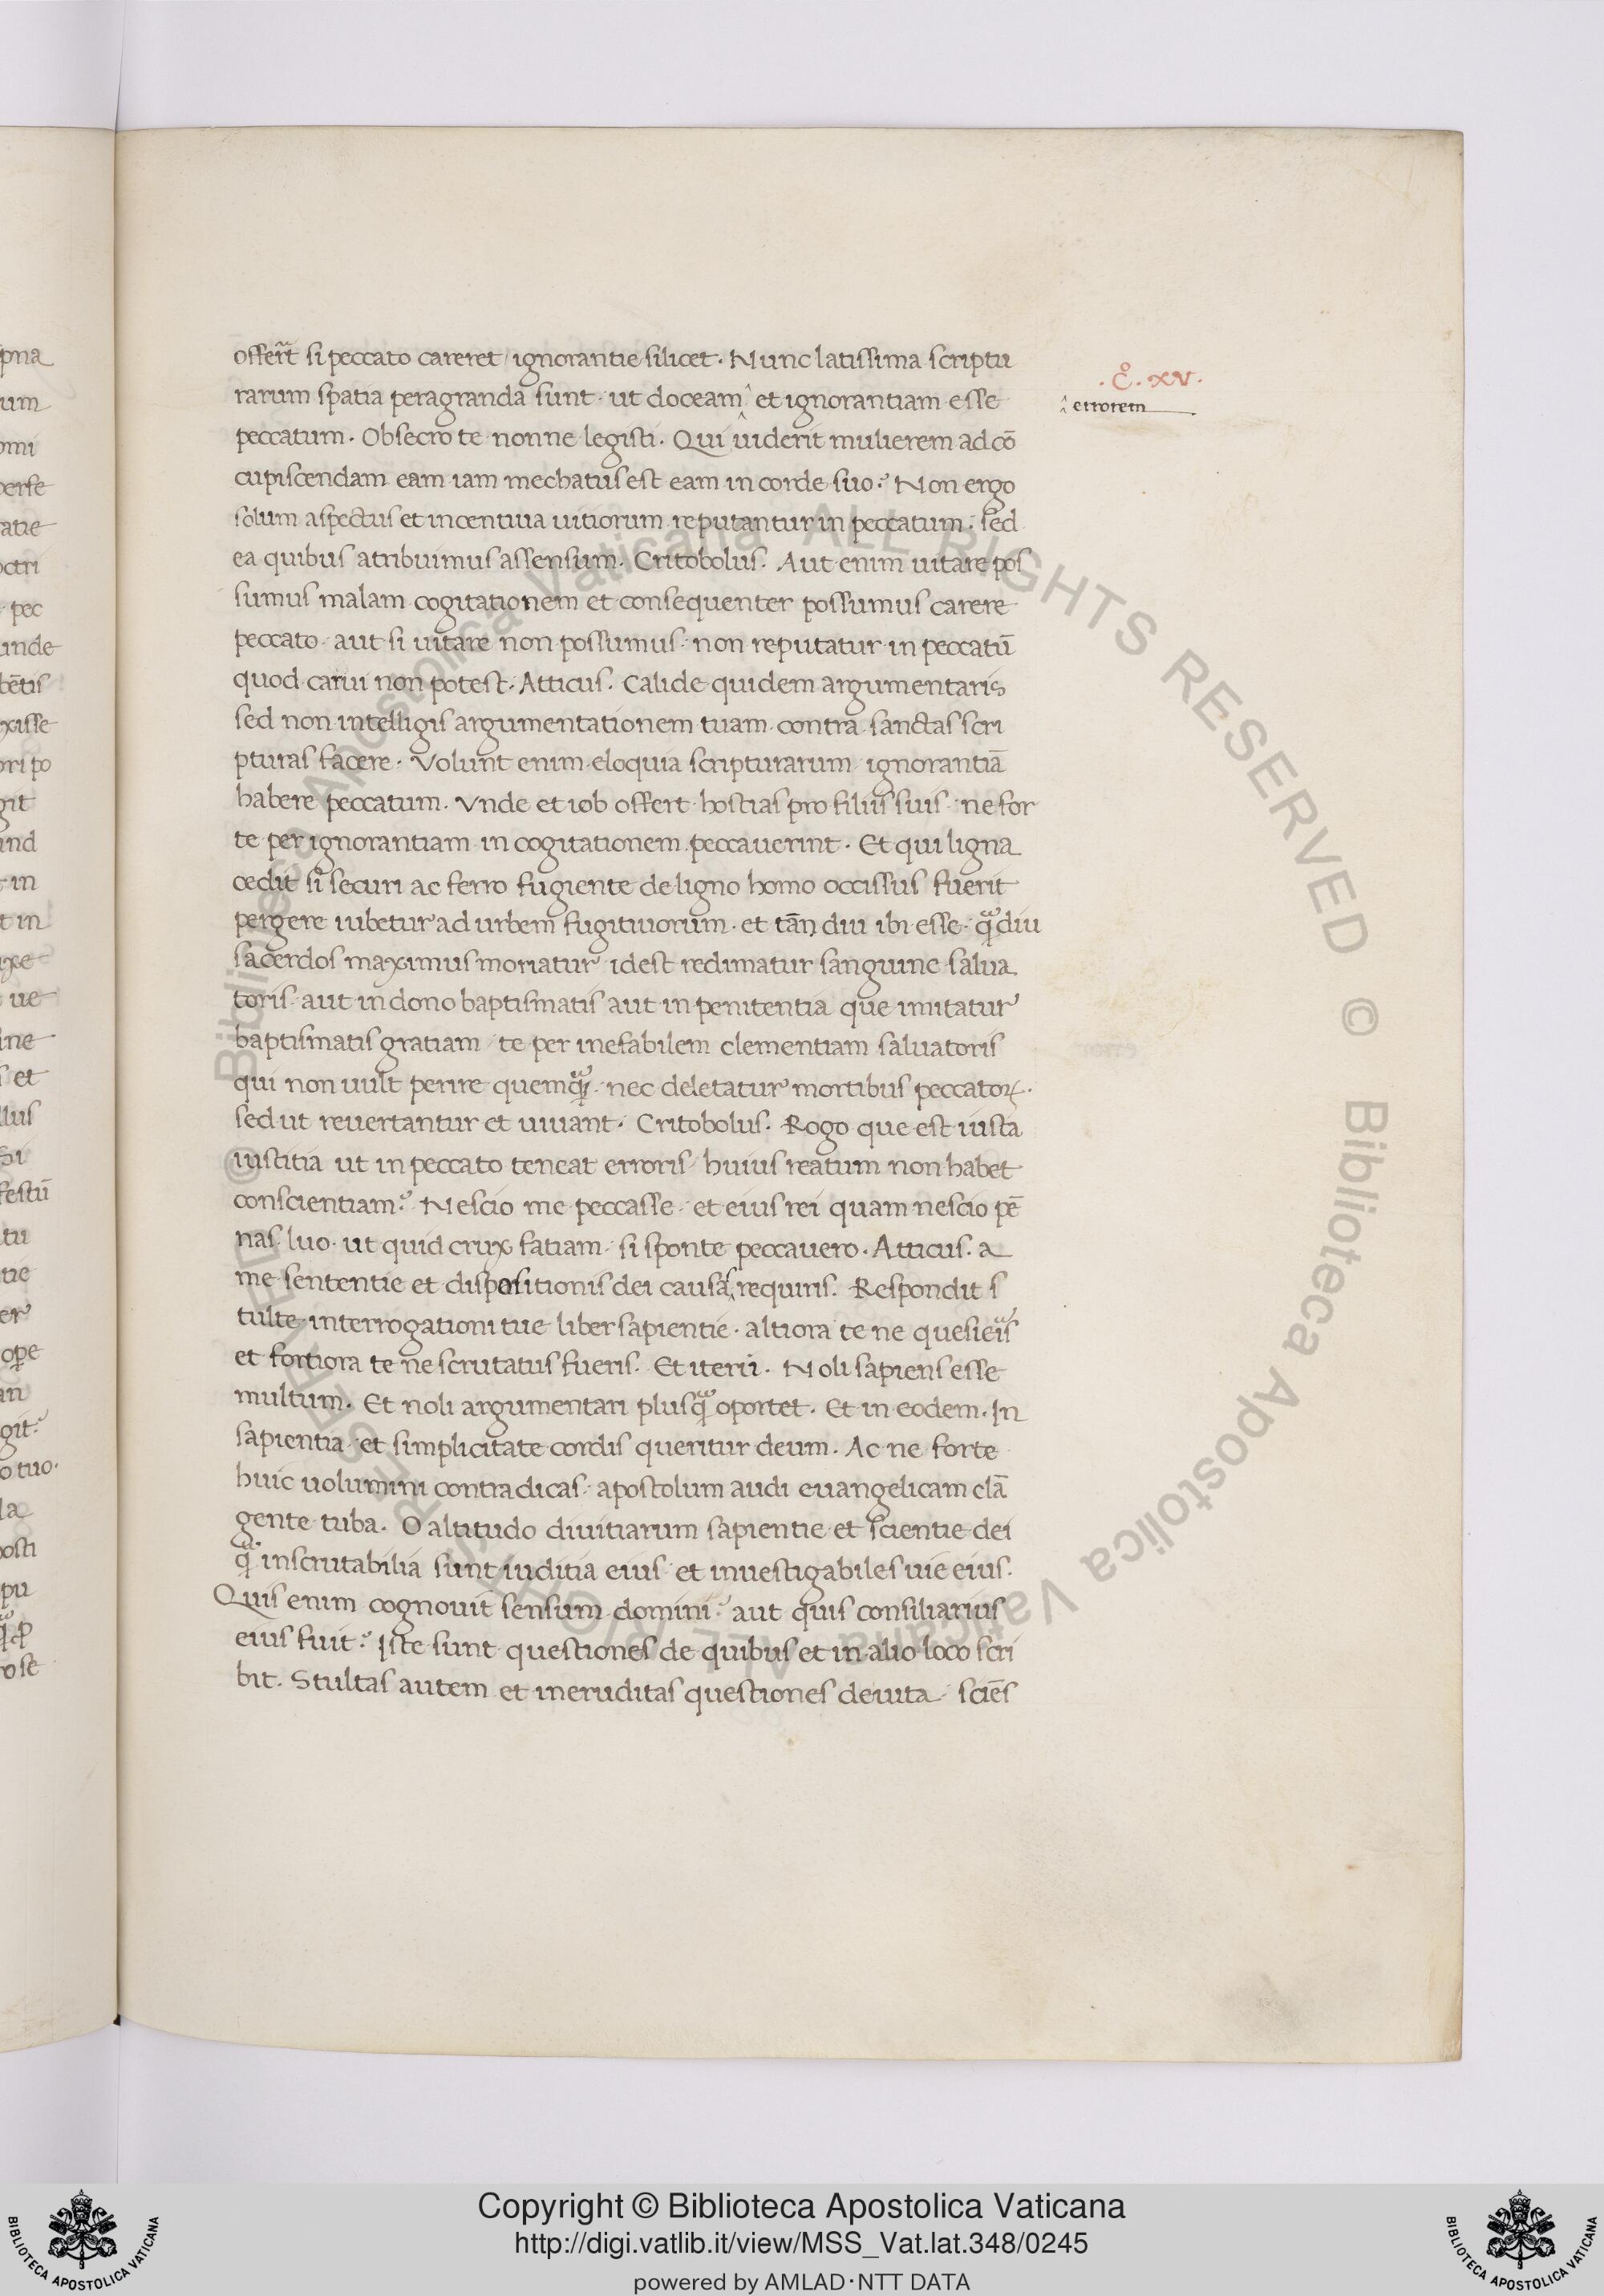 offerr̃t si peccato careret / ignorantie silicet · Nunc latissima scriptu
rarum spatia peragranda sunt · ut doceam ^ et ignorantiam esse
peccatum · Obsecro te nonne legisti · Qui uiderit mulierem ad cō
cupiscendam eam iam mechatus est eam in corde suo? Non ergo
solum aspectus et incentiua uitiorum reputantur in peccatum · sed
ea quibus atribuimus assensum · Critobolus · Aut enim uitare pos
sumus malam cogitationem et consequenter possumus carere
peccato · aut si uitare non possumus · non reputatur in peccatū
quod carui non potest · Atticus · Calide quidem argumentaris
sed non intelligis argumentationem tuam contra sanctas scri
pturas facere · Volunt enim eloquia scripturarum ignorantiā
habere peccatum · Vnde et iob offert hostias pro filiis suis · ne for
te per ignorantiam in cogitationem peccauerint · Et qui ligna
cedit si securi ac ferro fugiente de ligno homo occissus fuerit
pergere iubetur ad urbem fugitiuorum · et tān diu ibi esse · qᷓdiu
sacerdos maximus moriatur idest redimatur sanguine salua
toris · aut in dono baptismatis aut in penitentia que imitatur
baptismatis gratiam / te per inefabilem clementiam saluatoris
qui non uult perire quemqᷓ · nec deletatur mortibus peccatoꝝ ·
sed ut reuertantur et uiuant · Critobolus · Rogo que est iusta
iustitia ut in peccato teneat erroris / huius reatum non habet
conscientiam? Nescio me peccasse · et eius rei quam nescio pē
nas luo · ut quid crux fatiam · si sponte peccauero · Atticus · a
me sententie et dispositionis dei causas requiris · Respondit s
tulte interrogationi tue liber sapientie · altiora te ne quesieᷓis
et fortiora te ne scrutatus fueris · Et iterū · Noli sapiens esse
multum · Et noli argumentari plusqᷓ oportet · Et in eodem · In
sapientia et simplicitate cordis queritur deum · Ac ne forte
huic uolumini contradicas · apostolum audi euangelicam clā
gente tuba · O altitudo diuitiarum sapientie et scientie dei
qᷓ inscrutabilia sunt iuditia eius · et inuestigabiles uie eius ·
Quis enim cognouit sensum domini? aut quis consiliarius
eius fuit? Iste sunt questiones de quibus et in alio loco scri
bit · Stultas autem et ineruditas questiones deuita · sciēs
· C̊ · XV ·
^ errorem
pna
um
omi
perfe
atie
octri
pec
unde
bētis
xisse
ori po
git
ind
in
t in
uxe
ue
ine
s et
llus
si
festū
tu
tie
er
ope
an
git?
o tuo ·
la
posti
pu
ose
© Biblioteca Apostolica Vaticana ALL RIGHTS RESERVED © Biblioteca Apostolica Vaticana ALL RIGHTS RESERVED
Copyright © Biblioteca Apostolica Vaticana
http://digi.vatlib.it/view/MSS_Vat.lat.348/0245
powered by AMLAD·NTT DATA
BIBLIOTECA APOSTOLICA VATICANA
BIBLIOTECA APOSTOLICA VATICANA